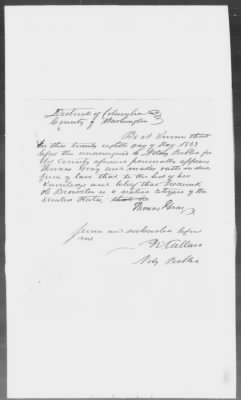 District of Columbia
County of Washington
Be it Known that
on this twenty eighth day of May 1853
before the undersigned a Notary Public for
the County aforesaid personally appears
Thomas Gray and makes oath in due
form of law that to the best of his
Knowledge and belief that Frederick
is a native citizen of the
United States
Thomas Gray
Sworn and subscribed before
me
N. Callan
Noty Public